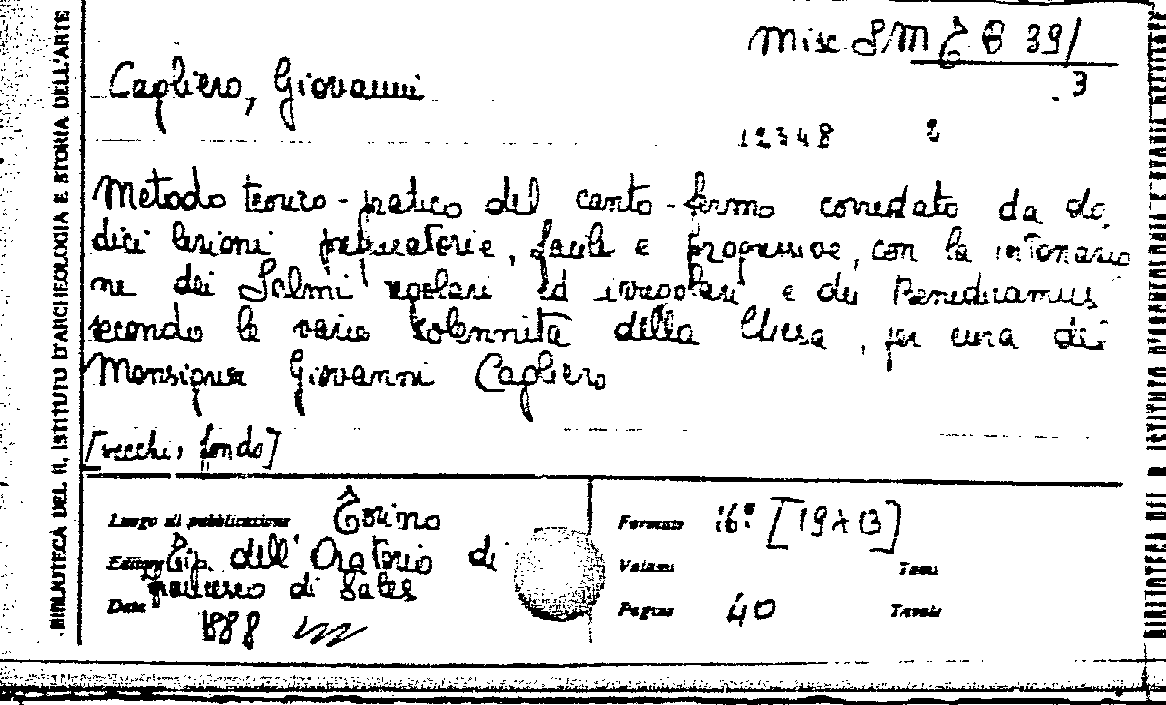 BIBLIOTECA DEL R. ISTITUTO D'ARCHEOLOGIA E STORIA DELL'ARTE
Misc SM B 39/
3
Cagliero, Giovanni
12348
Metodo teorico-pratico del canto-fermo corredato da do
dici lezioni preparatorie, facili e progressive, con la intonazio
ne dei Salmi regolari ed irregolari e dei Benedicamus
secondo le varie solennità della Chiesa, per cura di
Monsignor Giovanni Cagliero
[vecchio fondo]
Luogo di pubblicazione Torino
Editore Tip. dell'Oratorio di
Francesco di Sales
Data 1888
Formato 16° [19 x 13]
Volumi Tomi
Pagine 40 Tavole
BIBLIOTECA DEL R ISTITUTO D'ARCHEOLOGIA E STORIA DELL'ARTE